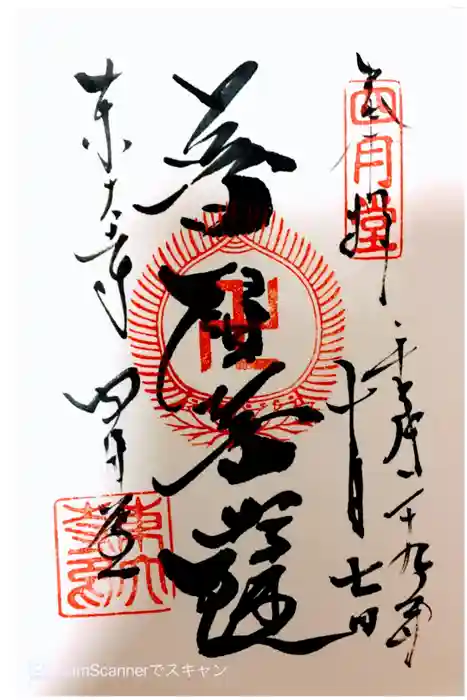 四月堂
奉拝
平成二十九年
十月七日
普賢菩薩
東大寺 四月堂
CamScannerでスキャン